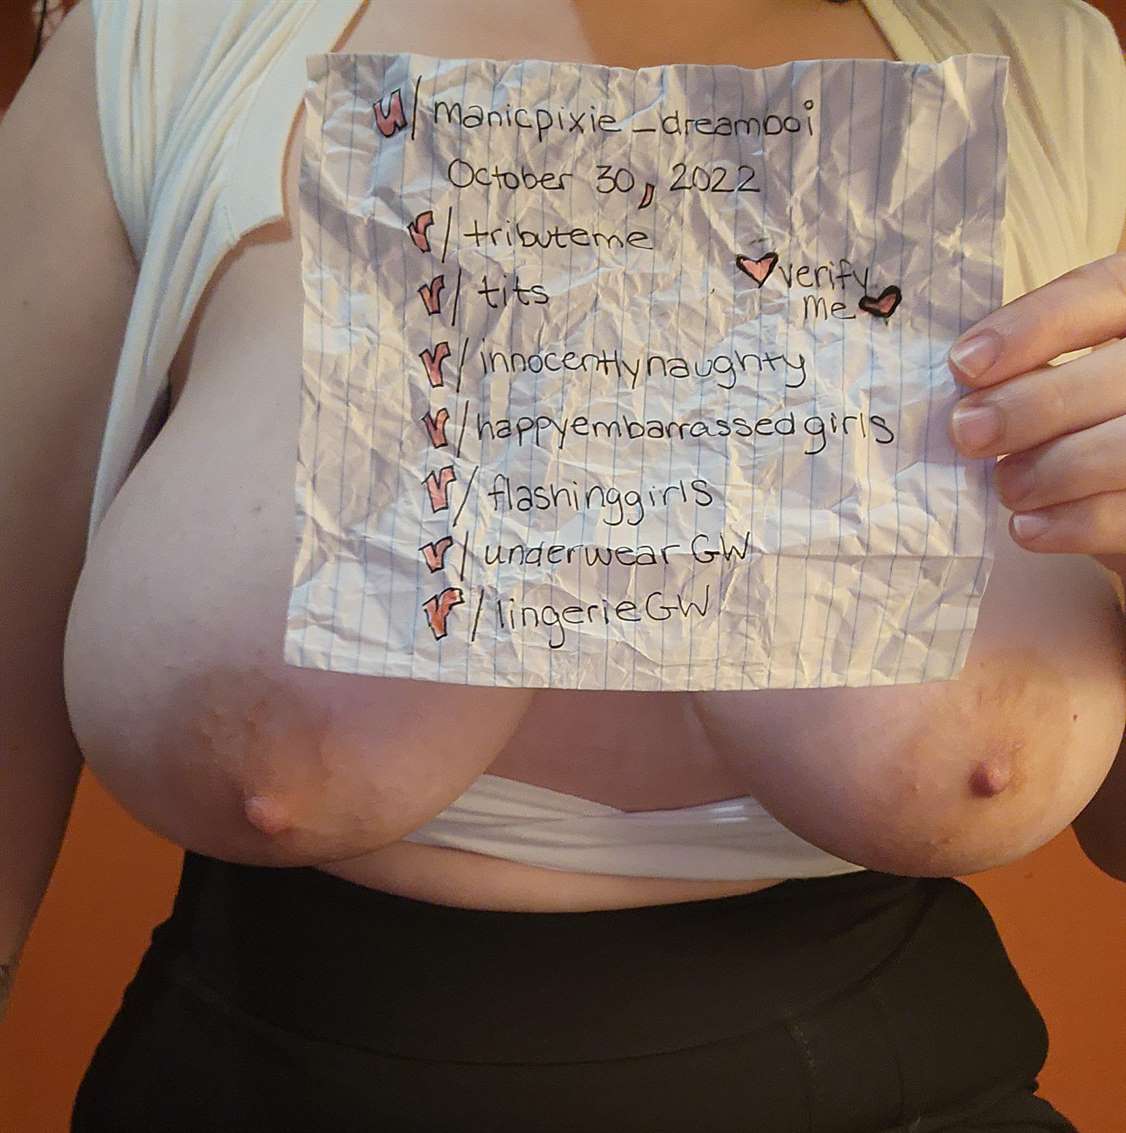 u/manicpixie_dreamboi
October 30, 2022
r/tributeme
r/tits
♥verify
me♥
r/innocentlynaughty
r/happyembarrassedgirls
r/flashinggirls
r/underwearGW
r/lingerieGW